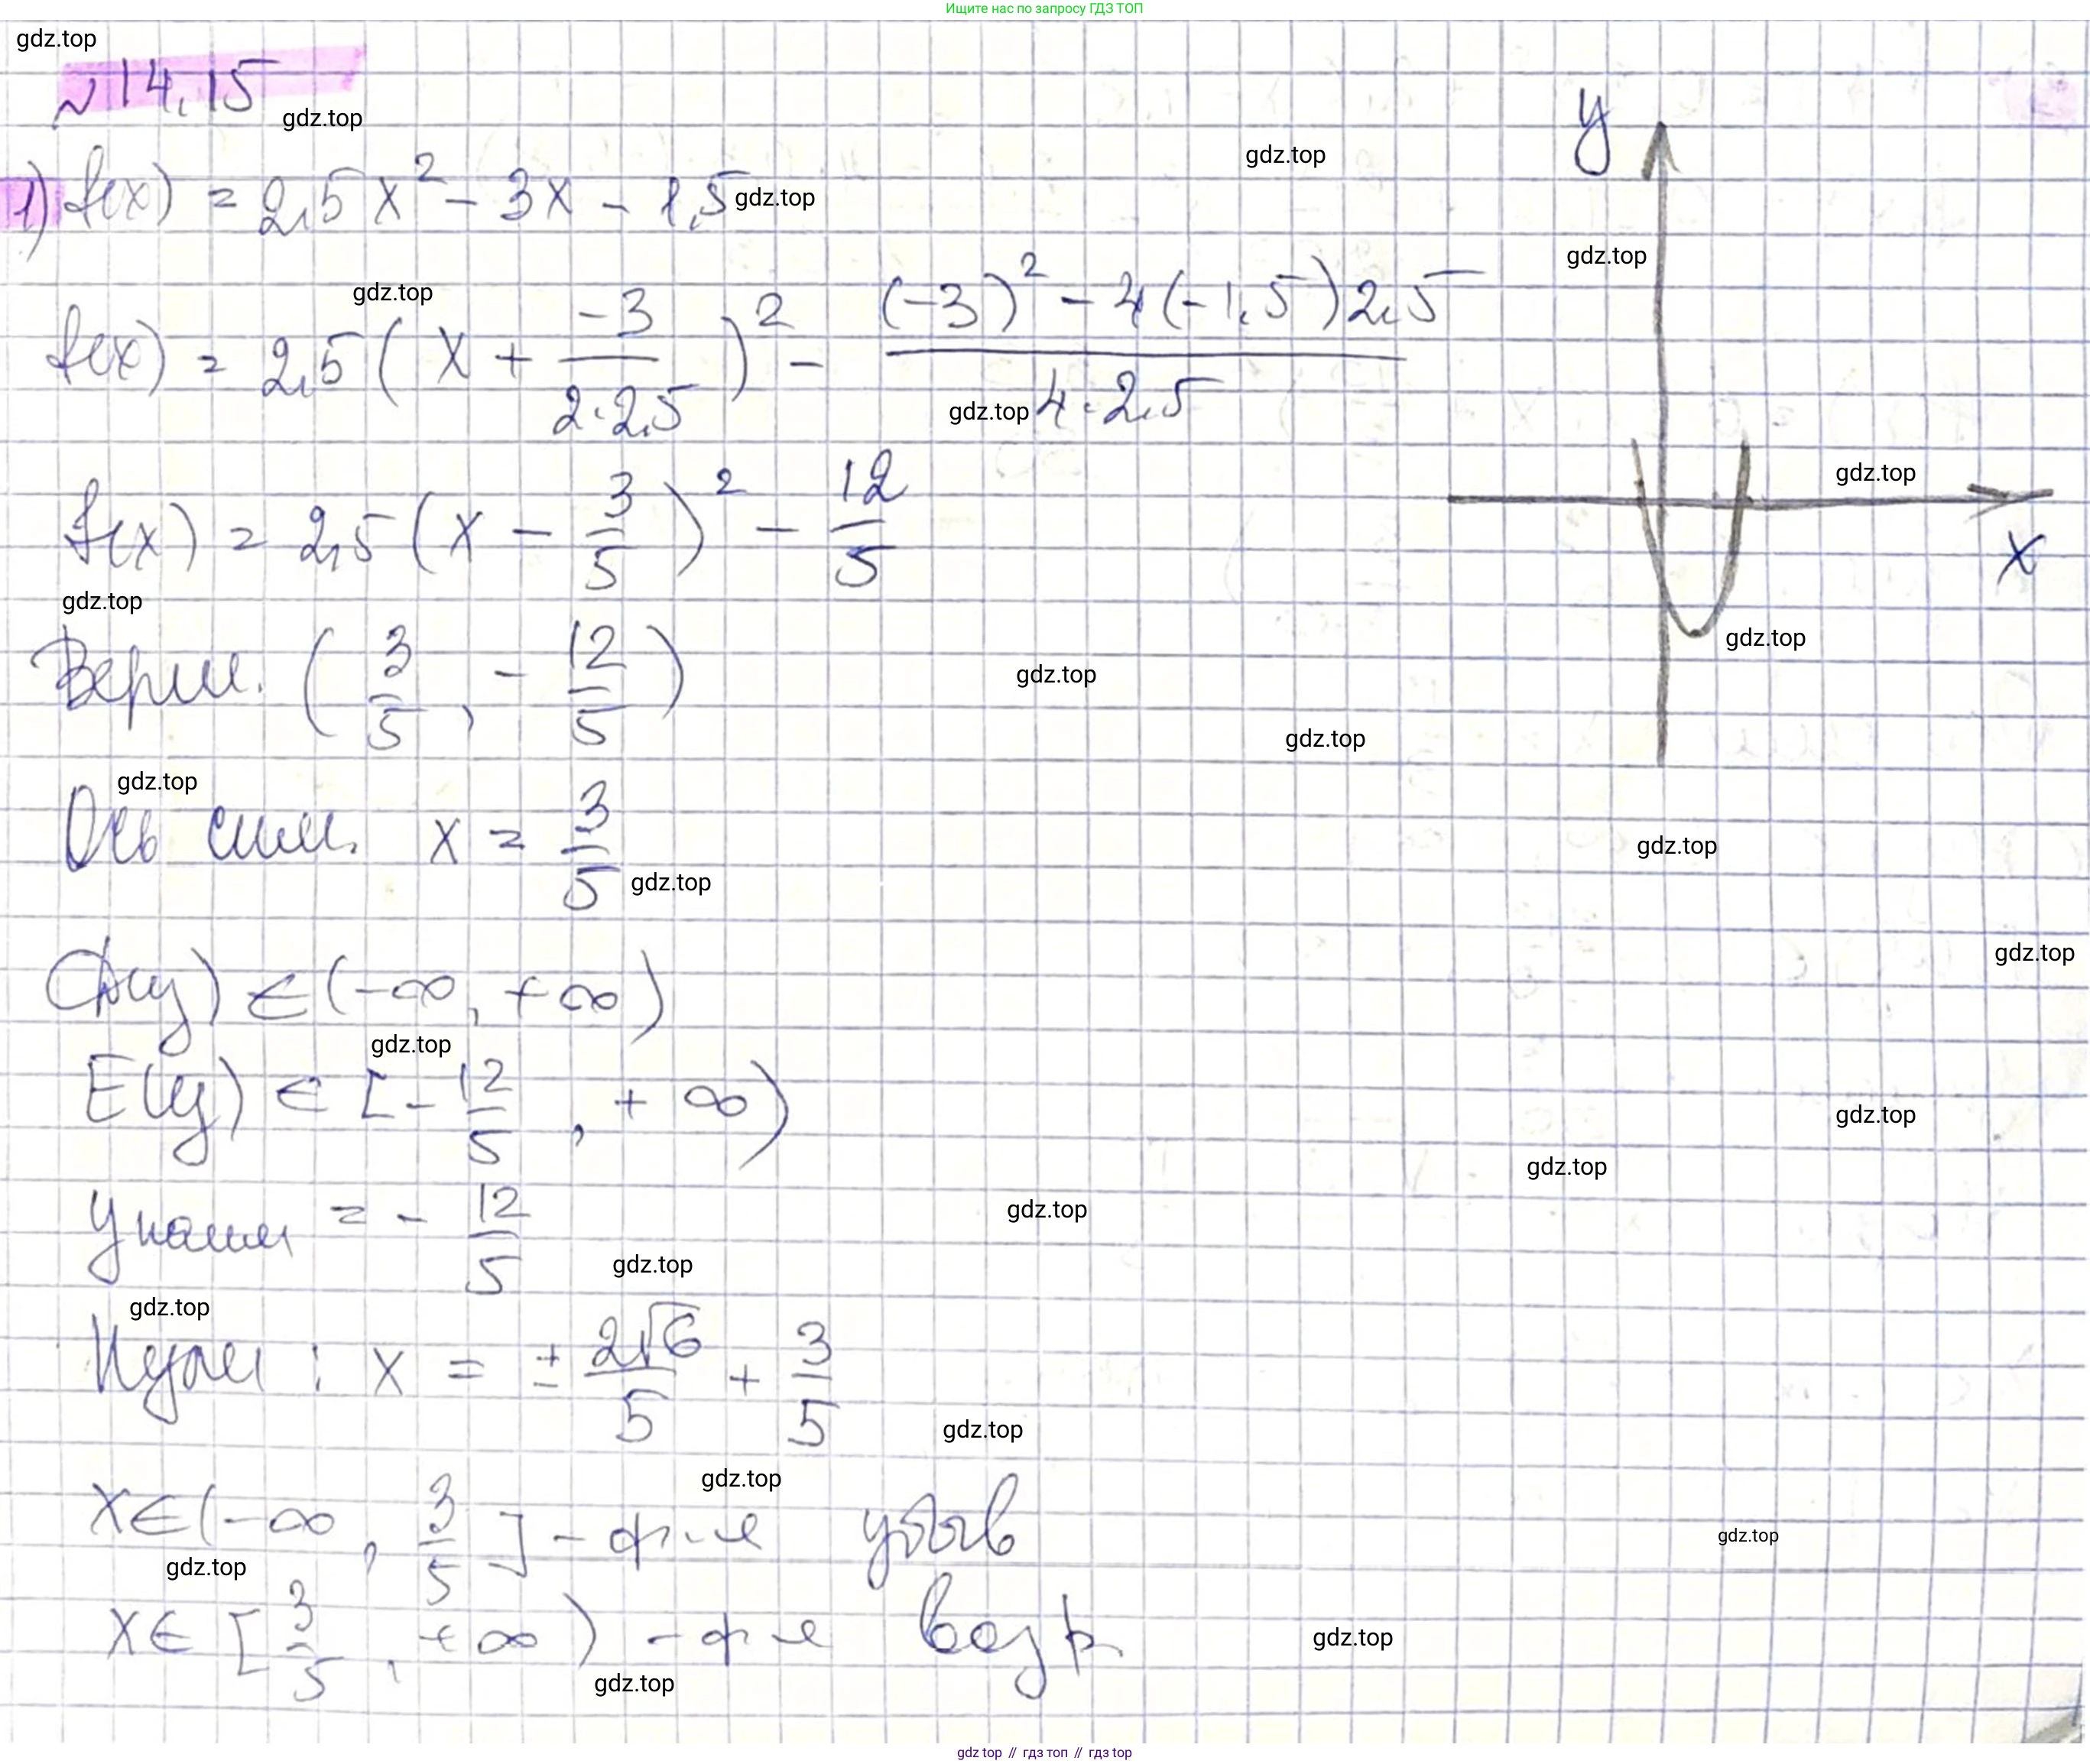 Ищите нас по запросу ГДЗ ТОП
gdz.top
№14.15
gdz.top
gdz.top
1) f(x) = 2,5x² - 3x - 1,5 gdz.top
gdz.top
gdz.top
f(x) = 2,5(x + -3/(2·2,5))² - ((-3)² - 4(-1,5)2,5)/(4·2,5)
gdz.top
y
gdz.top
x
f(x) = 2,5(x - 3/5)² - 12/5
gdz.top
gdz.top
Верш. (3/5, -12/5)
gdz.top
gdz.top
gdz.top
Ось сим. x = 3/5
gdz.top
gdz.top
gdz.top
D(y) ∈ (-∞, +∞)
gdz.top
E(y) ∈ [-12/5, +∞)
gdz.top
gdz.top
yнаим = -12/5
gdz.top
gdz.top
gdz.top
Нули: x = ±2√6/5 + 3/5
gdz.top
gdz.top
x∈(-∞, 3/5] - ф-я убыв
gdz.top
gdz.top
x∈[3/5, +∞) - ф-я возр.
gdz.top
gdz.top
gdz top // гдз топ // гдз top